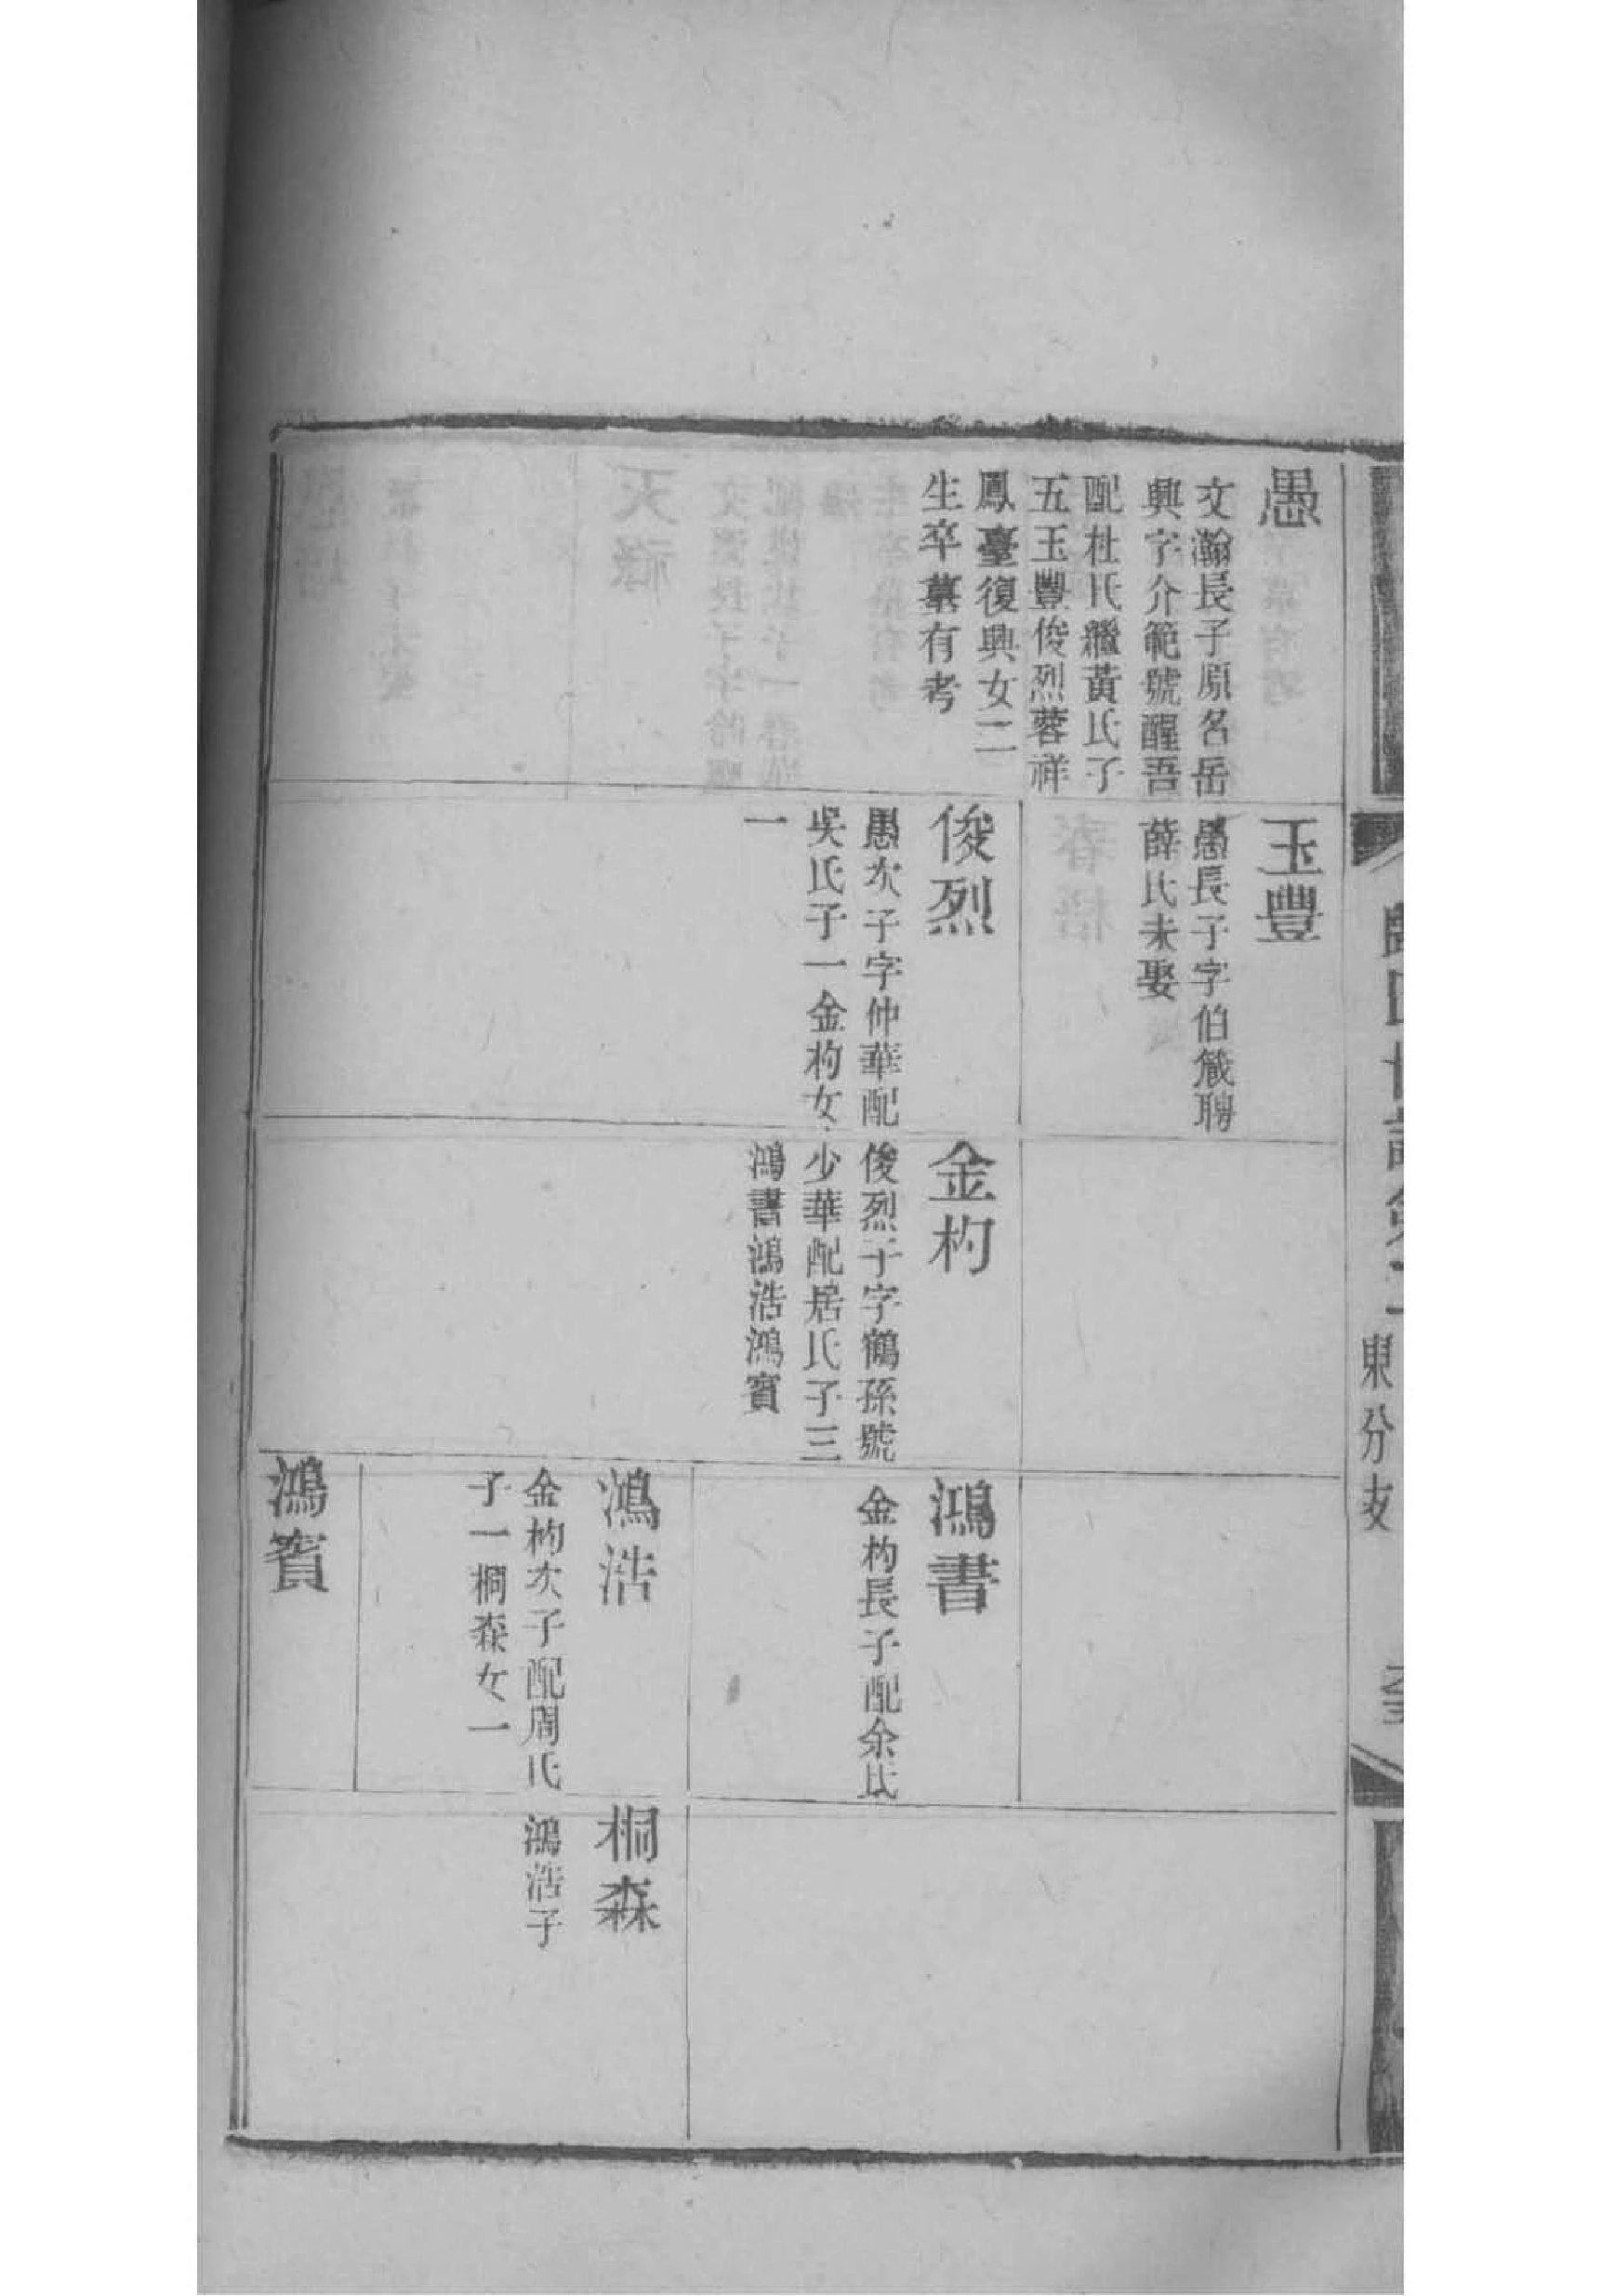 愚
文瀚長子原名岳
興字介範號醒吾
配杜氏繼黃氏子
五玉豐俊烈蓉祥
鳳臺復興女二
生卒墓有考
玉豐
愚長子字伯籛聘
薛氏未娶
俊烈
愚次子字仲華配
吳氏子一金枃女
一
金枃
俊烈子字鶴孫號
少華配居氏子三
鴻書鴻浩鴻賓
鴻書
金枃長子配余氏
鴻浩
金枃次子配周氏
子一桐森女一
鴻賓
桐森
鴻浩子
東分支